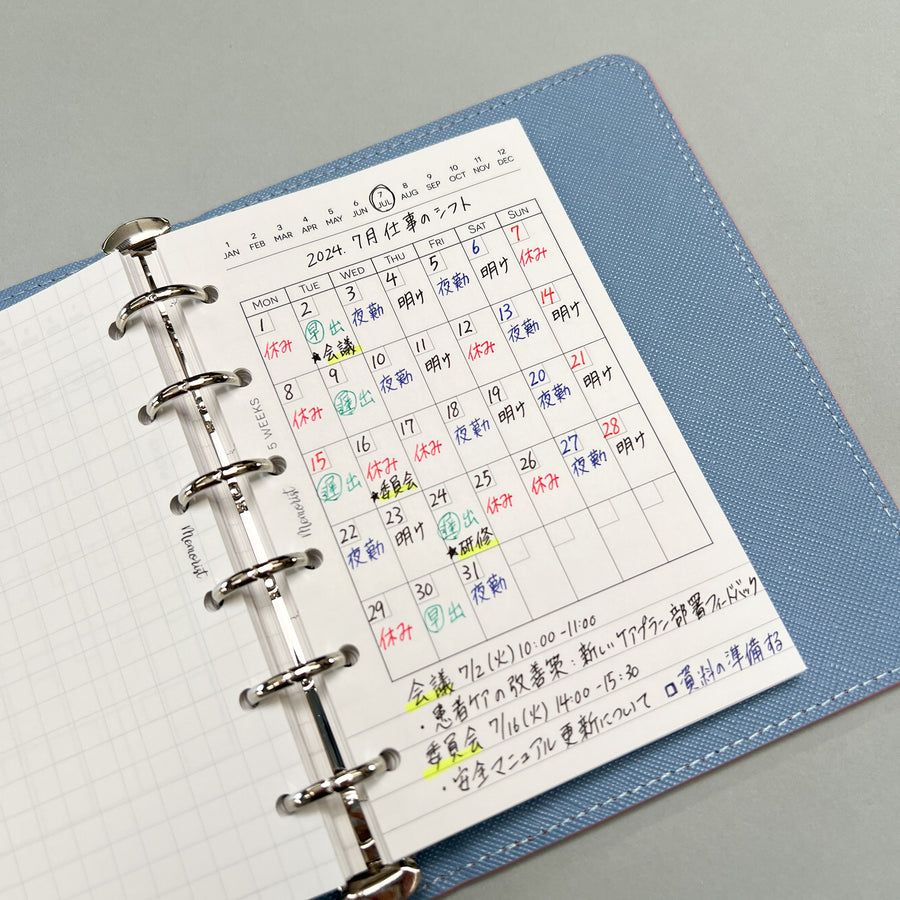 1 2 3 4 5 6 7 8 9 10 11 12
JAN FEB MAR APR MAY JUN JUL AUG SEP OCT NOV DEC
2024. 7月 仕事のシフト
MON TUE WED THU FRI SAT SUN
1 2 3 4 5 6 7
休み 早出 夜勤 明け 夜勤 明け 休み
★会議
8 9 10 11 12 13 14
休み 遅出 夜勤 明け 休み 夜勤 明け
15 16 17 18 19 20 21
遅出 休み 休み 夜勤 明け 夜勤 明け
★委員会
22 23 24 25 26 27 28
夜勤 明け 遅出 休み 休み 夜勤 明け
★研修
29 30 31
休み 早出 夜勤
5 WEEKS
Memorist
Memorist
会議 7/2(火) 10:00-11:00
・患者ケアの改善策:新しいケアプラン部署フィードバック
委員会 7/16(火) 14:00-15:30 □資料の準備する
・安全マニュアル更新について